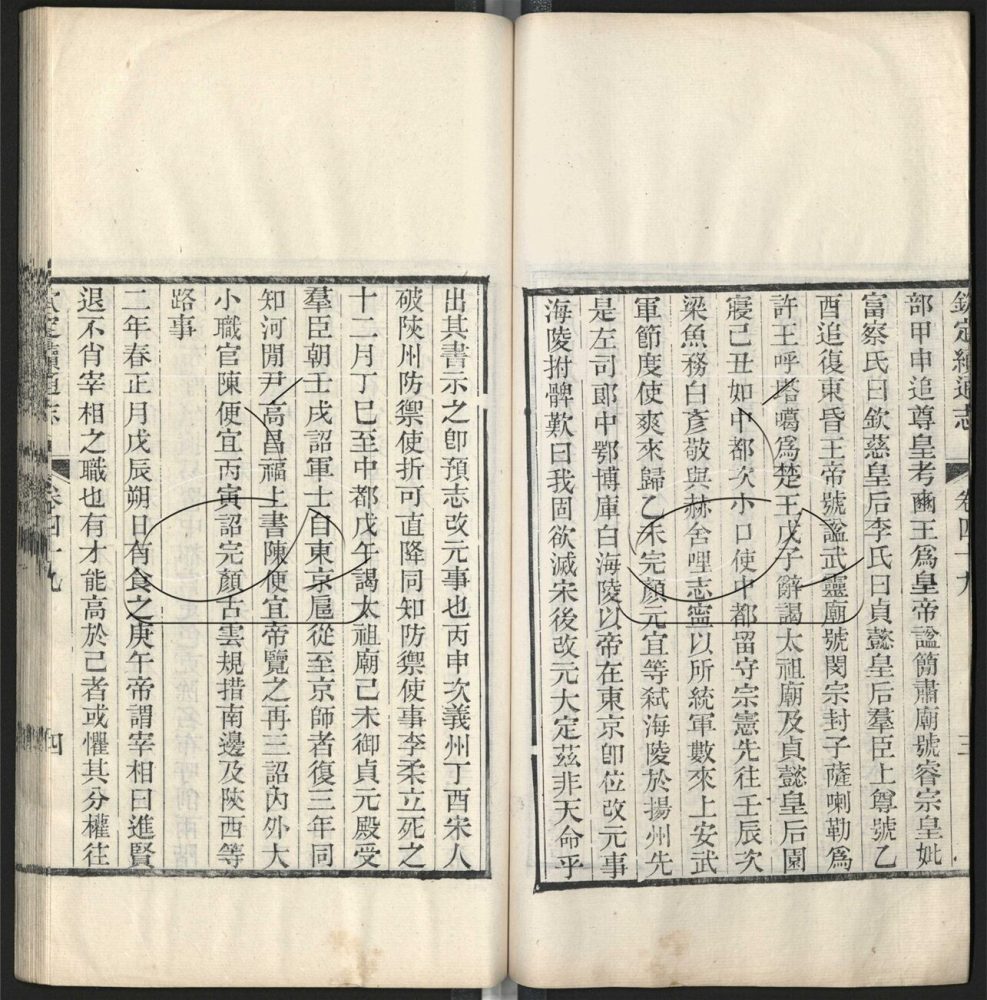 欽定續通志 卷四十九 三
部甲申追尊皇考豳王爲皇帝諡簡肅廟號睿宗皇妣
富察氏曰欽慈皇后李氏曰貞懿皇后羣臣上尊號乙
酉追復東昏王帝號諡武靈廟號閔宗封子薩喇勒爲
許王呼塔噶爲楚王戊子辭謁太祖廟及貞懿皇后園
寢己丑如中都次小口使中都留守宗憲先往壬辰次
梁魚務白彥敬與赫舍哩志寧以所統軍數來上安武
軍節度使爽來歸乙未完顏元宜等弒海陵於揚州先
是左司郎中鄂博庫白海陵以帝在東京卽位改元事
海陵拊髀歎曰我固欲滅宋後改元大定茲非天命乎
出其書示之卽預志改元事也丙申次義州丁酉宋人
破陝州防禦使折可直降同知防禦使事李柔立死之
十二月丁巳至中都戊午謁太祖廟己未御貞元殿受
羣臣朝壬戌詔軍士自東京扈從至京師者復三年同
知河閒尹高昌福上書陳便宜帝覽之再三詔內外大
小職官陳便宜丙寅詔完顏古雲規措南邊及陝西等
路事
二年春正月戊辰朔日有食之庚午帝謂宰相曰進賢
退不肖宰相之職也有才能高於己者或懼其分權往
欽定續通志 卷四十九 四